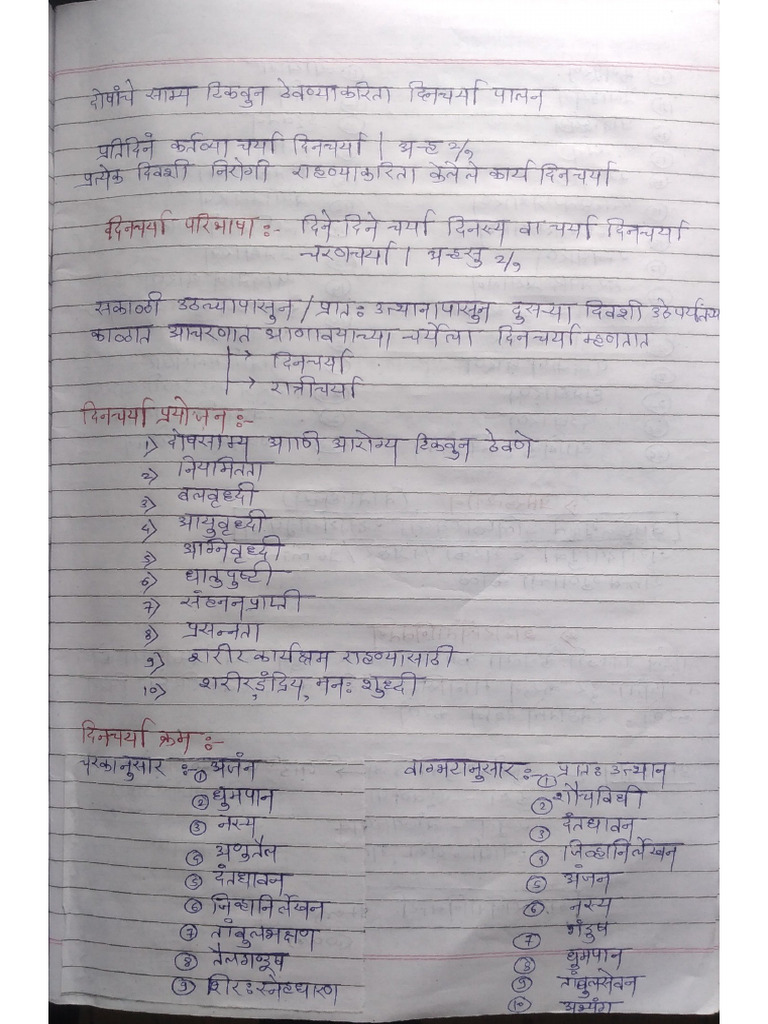 दोषांचे साम्य टिकवून ठेवण्याकरिता दिनचर्या पालन
प्रतिदिनं कर्तव्या चर्या दिनचर्या | अ.हृ 2/1
प्रत्येक दिवशी निरोगी राहण्याकरिता केलेले कार्य दिनचर्या
दिनचर्या परिभाषा :- दिने दिने चर्या दिनस्य वा चर्या दिनचर्या
चरणचर्या | अ.हृ.सु 2/1
सकाळी उठल्यापासुन / प्रातः उत्थानापासुन दुसऱ्या दिवशी उठेपर्यंतच्या
काळात आचरणात आणावयाच्या चर्येला दिनचर्या म्हणतात
→ दिनचर्या
→ रात्रीचर्या
दिनचर्या प्रयोजन :-
1) दोषसाम्य आणि आरोग्य टिकवुन ठेवणे
2) नियामितता
3) बलवृध्दी
4) आयुवृध्दी
5) अग्निवृध्दी
6) धातुपुष्टी
7) संहननप्राप्ती
8) प्रसन्नता
9) शरीर कार्यक्षम राहण्यासाठी
10) शरीर, इंद्रिय, मनः शुध्दी
दिनचर्या क्रम :-
चरकानुसार :- ① अजंन
② धुमपान
③ नस्य
④ अणुतैल
⑤ दंतधावन
⑥ जिव्हानिर्लेखन
⑦ तांबुलभक्षण
⑧ तैलगण्डूष
⑨ शिरःस्नेहधारण
वाग्भटानुसार :- ① प्रातः उत्थान
② शौचविधी
③ दंतधावन
④ जिव्हानिर्लेखन
⑤ अंजन
⑥ नस्य
⑦ गंडुष
⑧ धुमपान
⑨ तांबुलसेवन
⑩ अभ्यंग